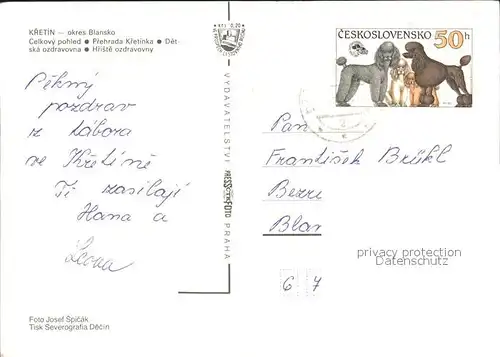 KŘETÍN — okres Blansko
Celkový pohled ● Přehrada Křetínka ● Dět-
ská ozdravovna ● Hřiště ozdravovny
Kčs 0,20
VYDAVATELSTVÍ PRESSFOTO PRAHA
ČESKOSLOVENSKO
50h
Pěkný
pozdrav
z tábora
ve Křetíně
Ti zasílají
Hana a
Pan
František Brükl
Blan
privacy protection
Datenschutz
6 7
Foto Josef Špičák
Tisk Severografia Děčín